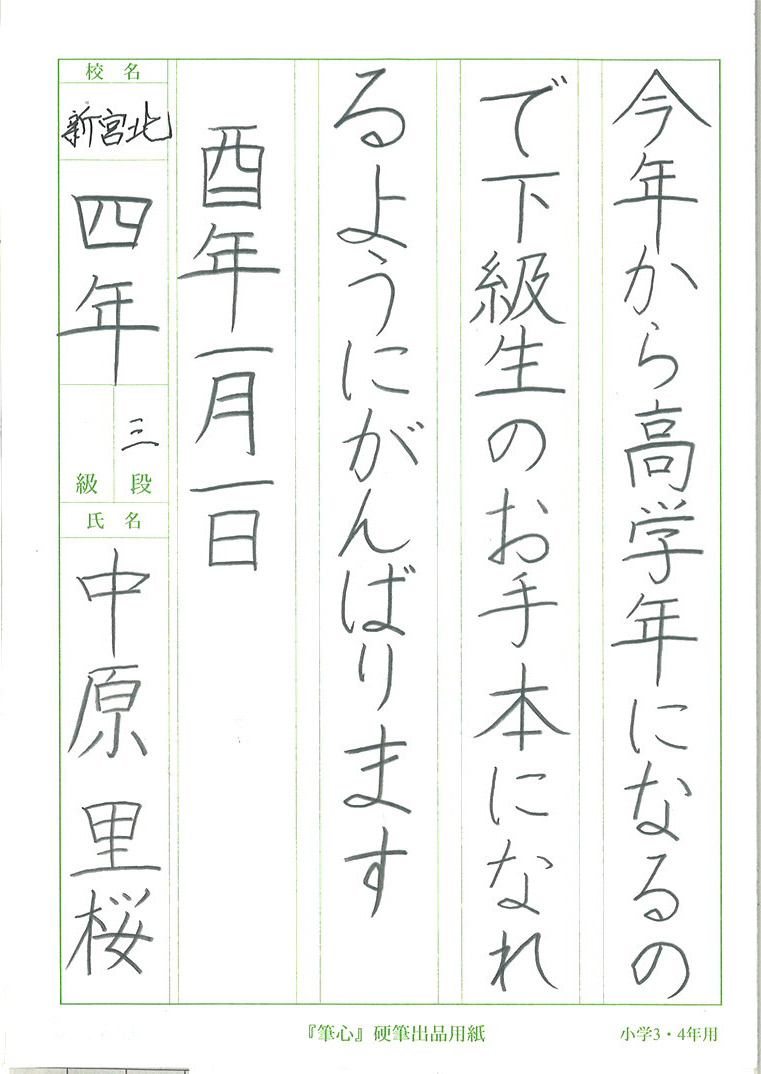 今年から高学年になるの
で下級生のお手本になれ
るようにがんばります
酉年一月一日
校名
新宮北
四年
三
級 段
氏名
中原 里桜
『筆心』硬筆出品用紙
小学3・4年用